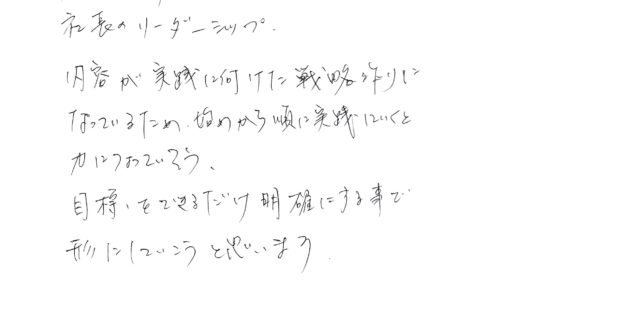 社長のリーダーシップ.
内容が実践に向けた戦略作りに
なっているため、始めから順に実践していくと
力になっていそう、
目標をできるだけ明確にする事で
形にしていこうと思います.